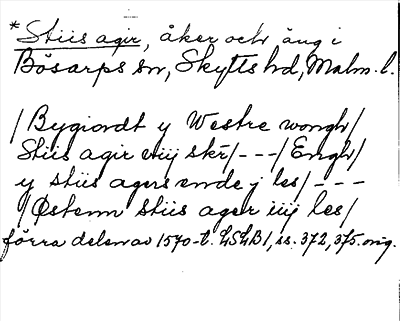 *Stiis agir, åker och äng i
Bösarps sn, Skytts hd, Malm. l.
/Bygiordt y Westre wongh/
Stiis agir viij skr/---/Engh/
y stiis agers ende j les/---
/Østenn stiis ager iiij les/
förra delen av 1570-t. LSLB1, ss. 372, 375. orig.